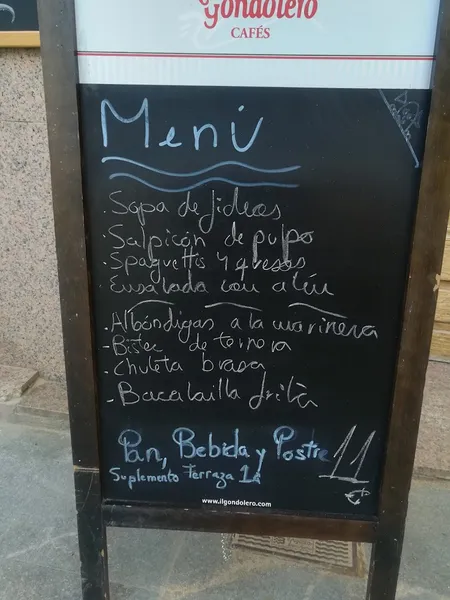 Gondolero
CAFÉS
Menú
. Sopa de fideos
. Salpicón de pulpo
. Spaguettis 4 quesos
. Ensalada con atún
. Albóndigas a la marinera
- Bistec de ternera
. Chuleta brasa
. Bacalailla frita
Pan, Bebida y Postre 11 €
Suplemento terraza 1€
www.ilgondolero.com